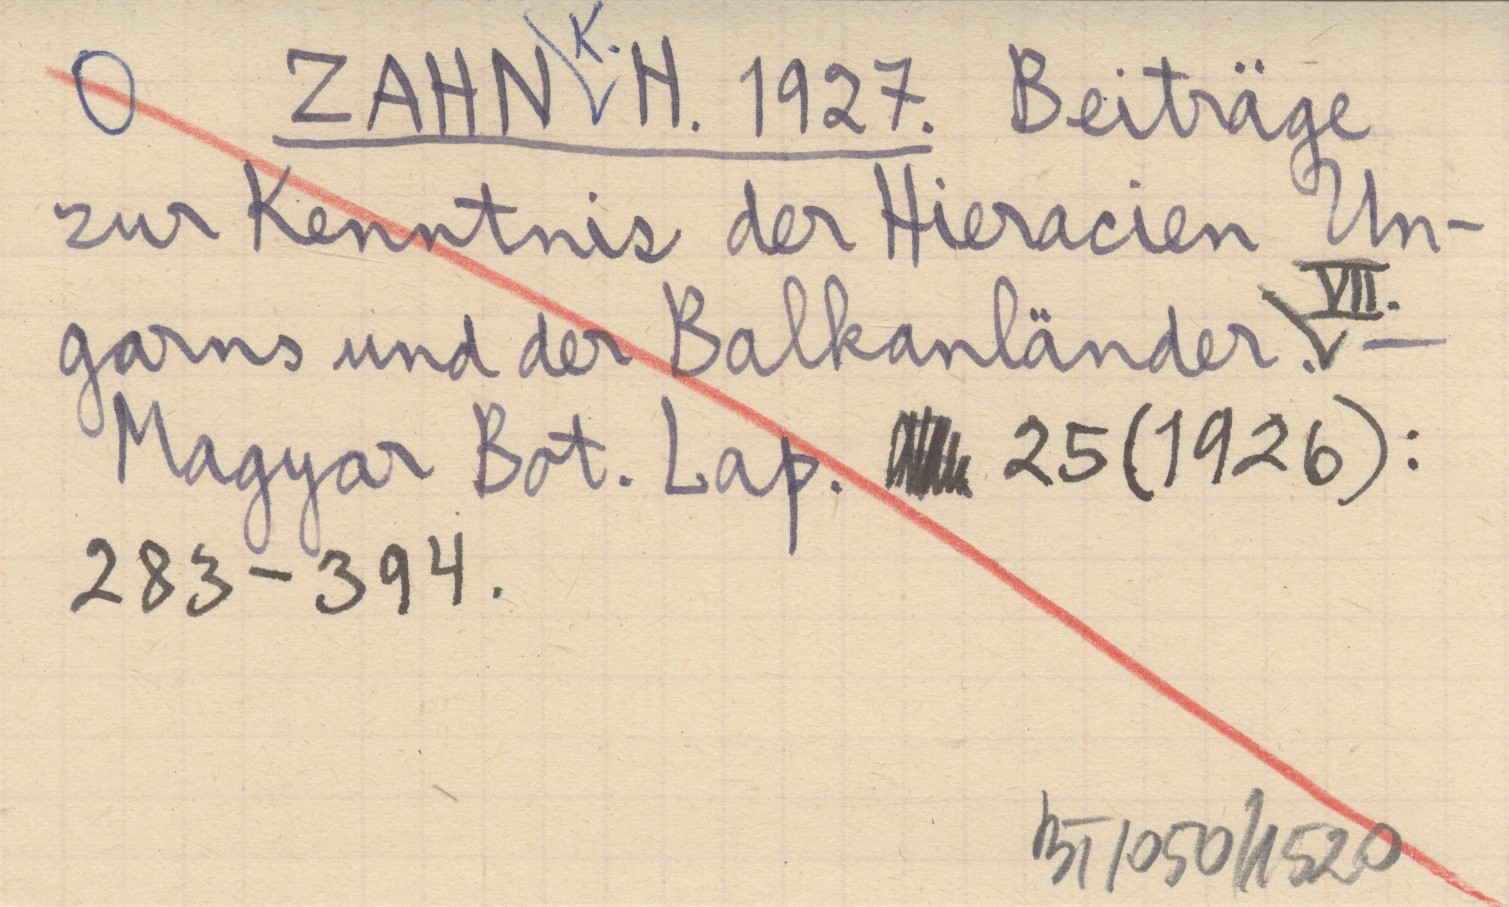 O ZAHN K. H. 1927. Beiträge
zur Kenntnis der Hieracien Un-
garns und der Balkanländer. VII. —
Magyar Bot. Lap. 25(1926):
283-394.
BI/050/1520